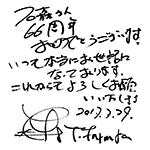 さん
66周年
おめでとうございます。
いつも本当にお世話に
なっております。
これからもよろしくお願
いいたします
2017.3.29.